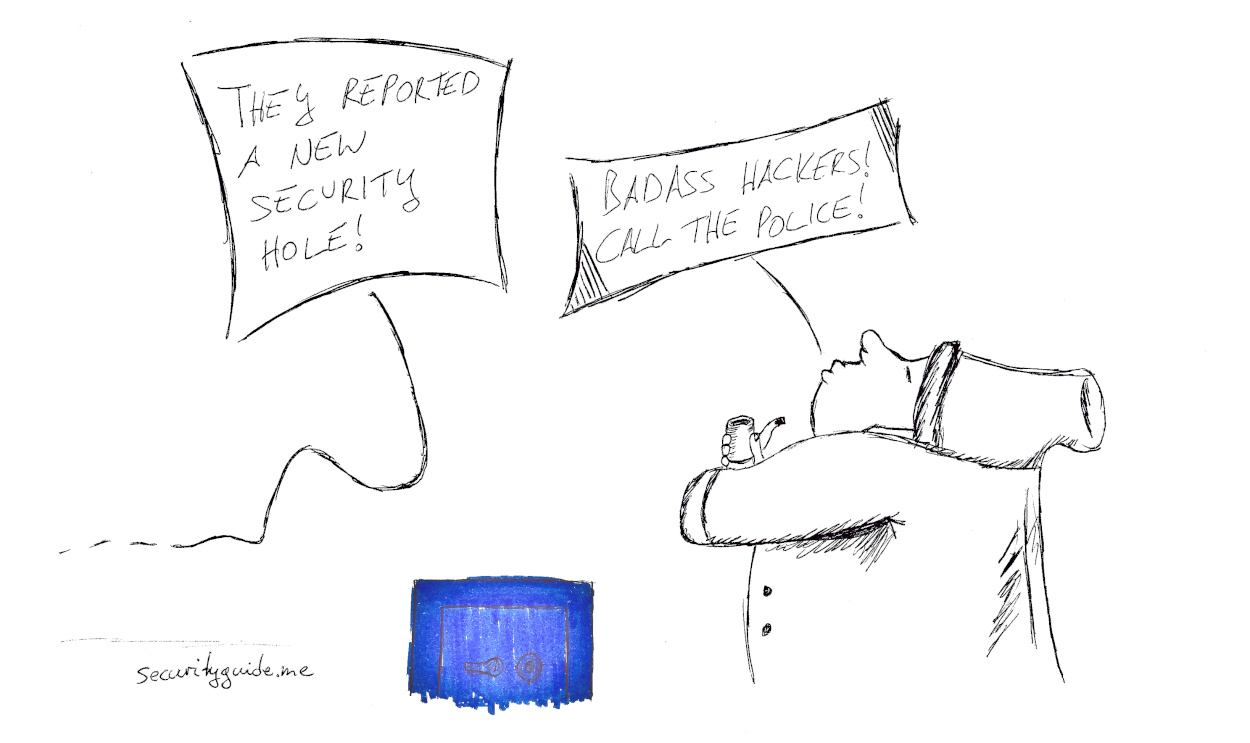 THEY REPORTED
A NEW
SECURITY
HOLE!
BADASS HACKERS!
CALL THE POLICE!
securityguide.me